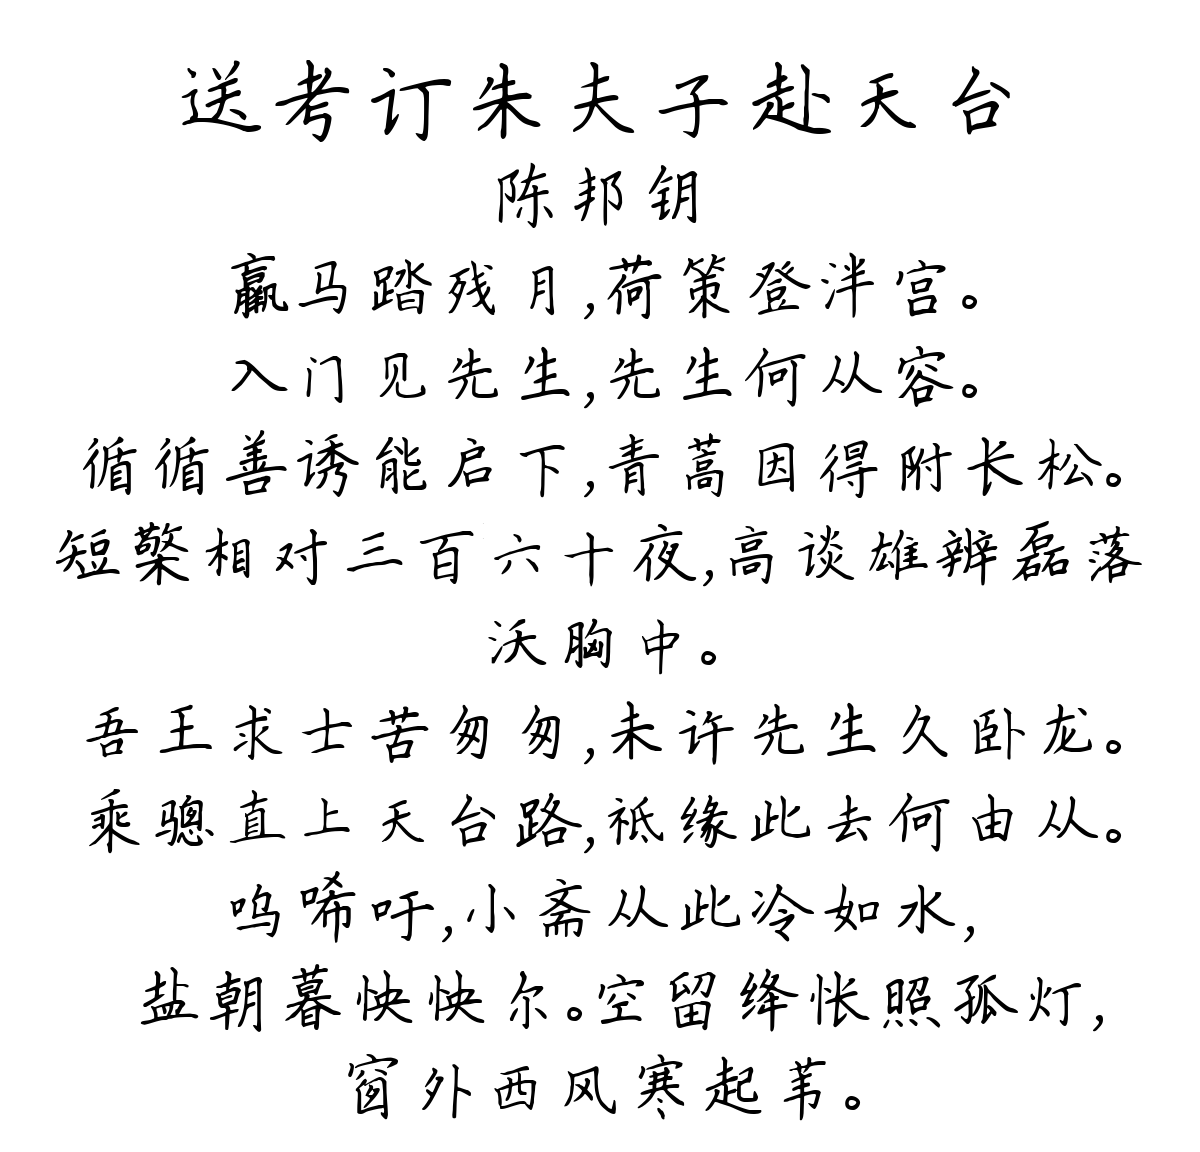 送考订朱夫子赴天台
陈邦钥
羸马踏残月,荷策登泮宫。
入门见先生,先生何从容。
循循善诱能启下,青蒿因得附长松。
短檠相对三百六十夜,高谈雄辨磊落
沃胸中。
吾王求士苦匆匆,未许先生久卧龙。
乘骢直上天台路,祗缘此去何由从。
呜唏吁,小斋从此冷如水,
盐朝暮怏怏尔。空留绛帐照孤灯,
窗外西风寒起苇。